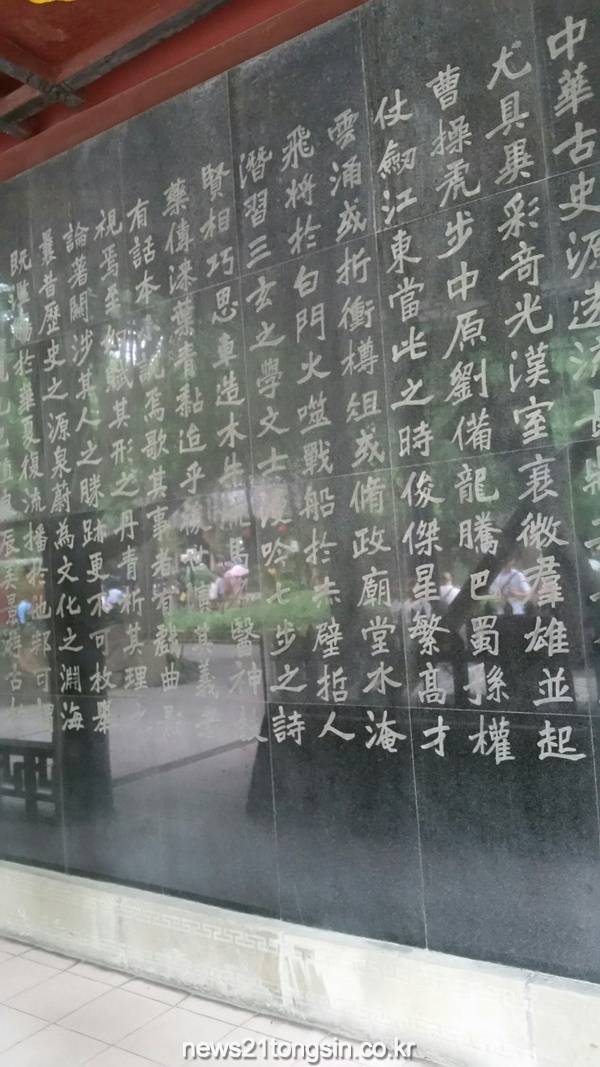 中華古史源遠流長
尤具異彩奇光漢室衰微羣雄並起
曹操虎步中原劉備龍騰巴蜀孫權
仗劒江東當此之時俊傑星繁高才
雲涌或折衝樽俎或脩政廟堂水淹
飛將於白門火噬戰船於赤壁哲人
潛習三玄之學文士吟七步之詩
賢相巧思車造木牛馬醫神
藥傳漆葉青黏迨乎其義
有話本焉歌其事者有戲曲
視焉至其形之丹青析其理
論著關涉其人之勝跡更不可枚舉
曩昔歷史之源泉蔚為文化之淵海
既於華夏復流播於他邦可
news21tongsin.co.kr